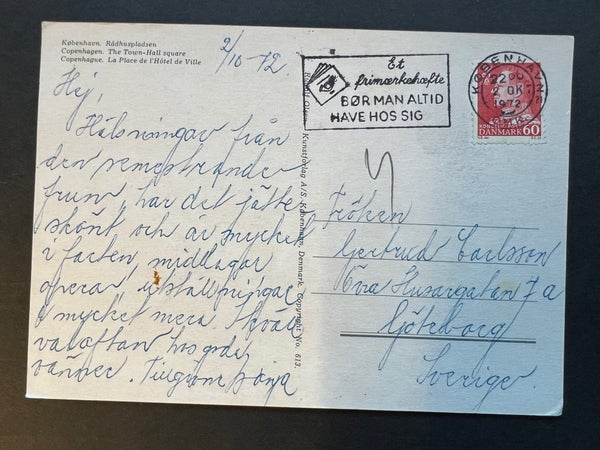 København. Rådhuspladsen
Copenhagen. The Town-Hall square
Copenhague. La Place de l'Hôtel de Ville
2/10-72.
Hej,
Hälsningar från
den semestrande
frun, har det jätte
skönt, och är mycket
i farten, middagar
operor, utställningar
& mycket mera. I kväll
valaftan hos goda
vänner.
Kunstforlag A/S, København, Denmark. Copyright No. 613.
Et
frimærkehæfte
BØR MAN ALTID
HAVE HOS SIG
KØBENHAVN
22 00
2 OK
1972
DANMARK 60
Fröken
Gertrud Carlsson
Övra Husargatan 7 a
Göteborg
Sverige.